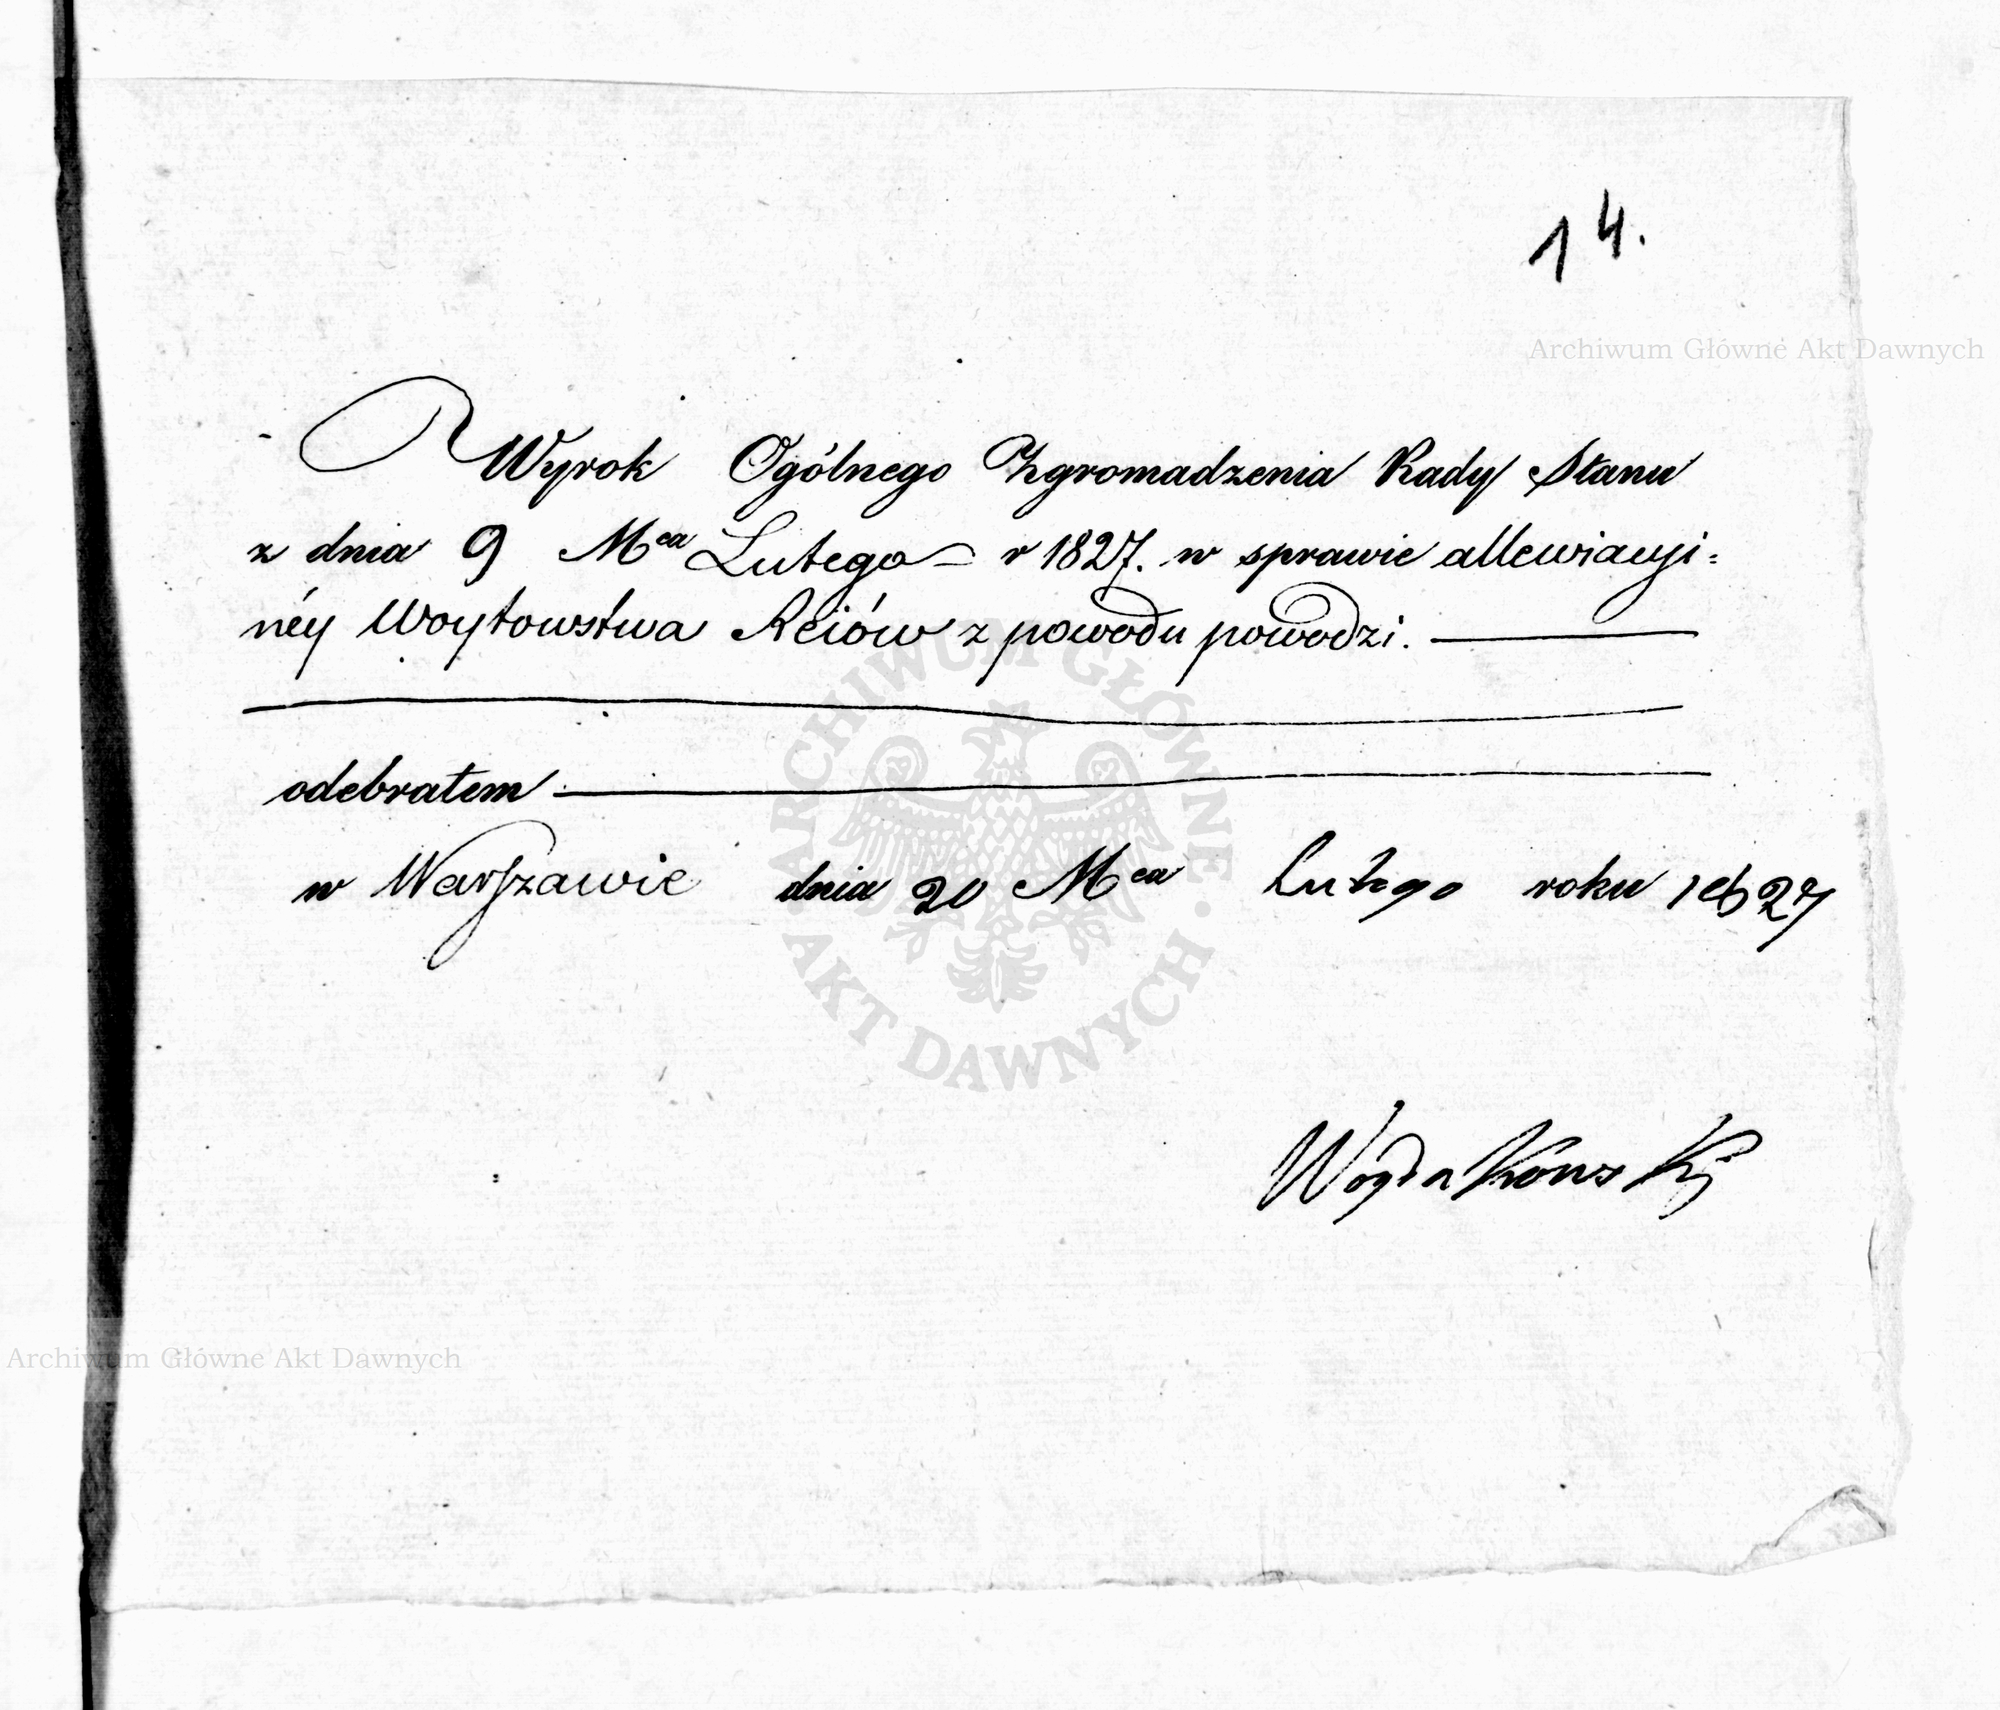 14.
Archiwum Główne Akt Dawnych
Wyrok Ogólnego Zgromadzenia Rady Stanu
z dnia 9 Mca Lutego r 1827. w sprawie allewiacyi=
néy Woytowstwa Reiów z powodu powodzi.
odebrałem
w Warszawie dnia 20 Mca Lutego roku 1827
ARCHIWUM GŁÓWNE
AKT DAWNYCH
Archiwum Główne Akt Dawnych